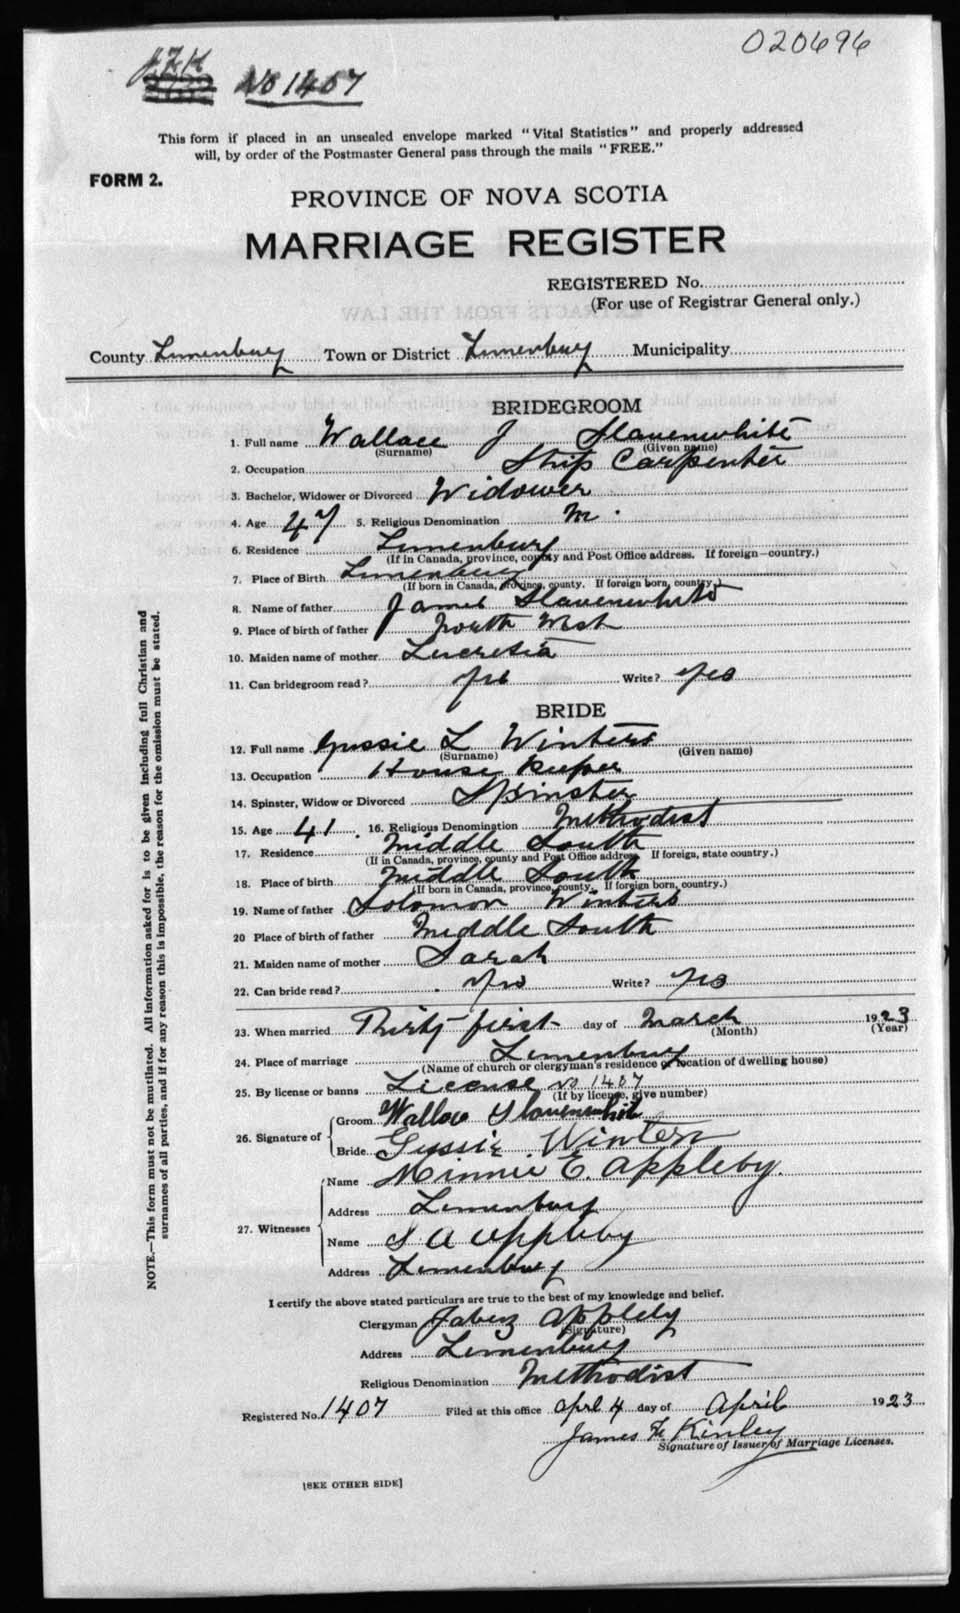 020696
J.F.K No 1407
This form if placed in an unsealed envelope marked "Vital Statistics" and properly addressed
will, by order of the Postmaster General pass through the mails "FREE."
FORM 2.
PROVINCE OF NOVA SCOTIA
MARRIAGE REGISTER
REGISTERED No.
(For use of Registrar General only.)
County Lunenburg Town or District Lunenburg Municipality
BRIDEGROOM
1. Full name Wallace J Slauenwhite
(Surname) (Given name)
2. Occupation Ship Carpenter
3. Bachelor, Widower or Divorced Widower
4. Age 47 5. Religious Denomination M.
6. Residence Lunenburg
(If in Canada, province, county and Post Office address. If foreign—country.)
7. Place of Birth Lunenburg
(If born in Canada, province, county. If foreign born, country.)
8. Name of father James Slauenwhite
9. Place of birth of father North West
10. Maiden name of mother Lucretia
11. Can bridegroom read? yes Write? yes
BRIDE
12. Full name Gussie L Winters
(Surname) (Given name)
13. Occupation House Keeper
14. Spinster, Widow or Divorced Spinster
15. Age 41. 16. Religious Denomination Methodist
17. Residence Middle South
(If in Canada, province, county and Post Office address. If foreign, state country.)
18. Place of birth Middle South
(If born in Canada, province, county. If foreign born, country.)
19. Name of father Solomon Winters
20 Place of birth of father Middle South
21. Maiden name of mother Sarah
22. Can bride read? yes Write? yes
23. When married Thirty-first day of March 1923
(Month) (Year)
24. Place of marriage Lunenburg
(Name of church or clergyman's residence or location of dwelling house)
25. By license or banns License No 1407
(If by license, give number)
26. Signature of
Groom Wallace Slauenwhite
Bride Gussie Winters
27. Witnesses
Name Minnie E. Appleby.
Address Lunenburg
Name S A Appleby
Address Lunenburg
I certify the above stated particulars are true to the best of my knowledge and belief.
Clergyman Jabez Appleby
(Signature)
Address Lunenburg
Religious Denomination Methodist
Registered No. 1407 Filed at this office Aprl 4 day of April 1923
James F. Kinley
Signature of Issuer of Marriage Licenses.
[SEE OTHER SIDE]
NOTE.—This form must not be mutilated. All information asked for is to be given including full Christian and
surnames of all parties, and if for any reason this is impossible, the reason for the omission must be stated.